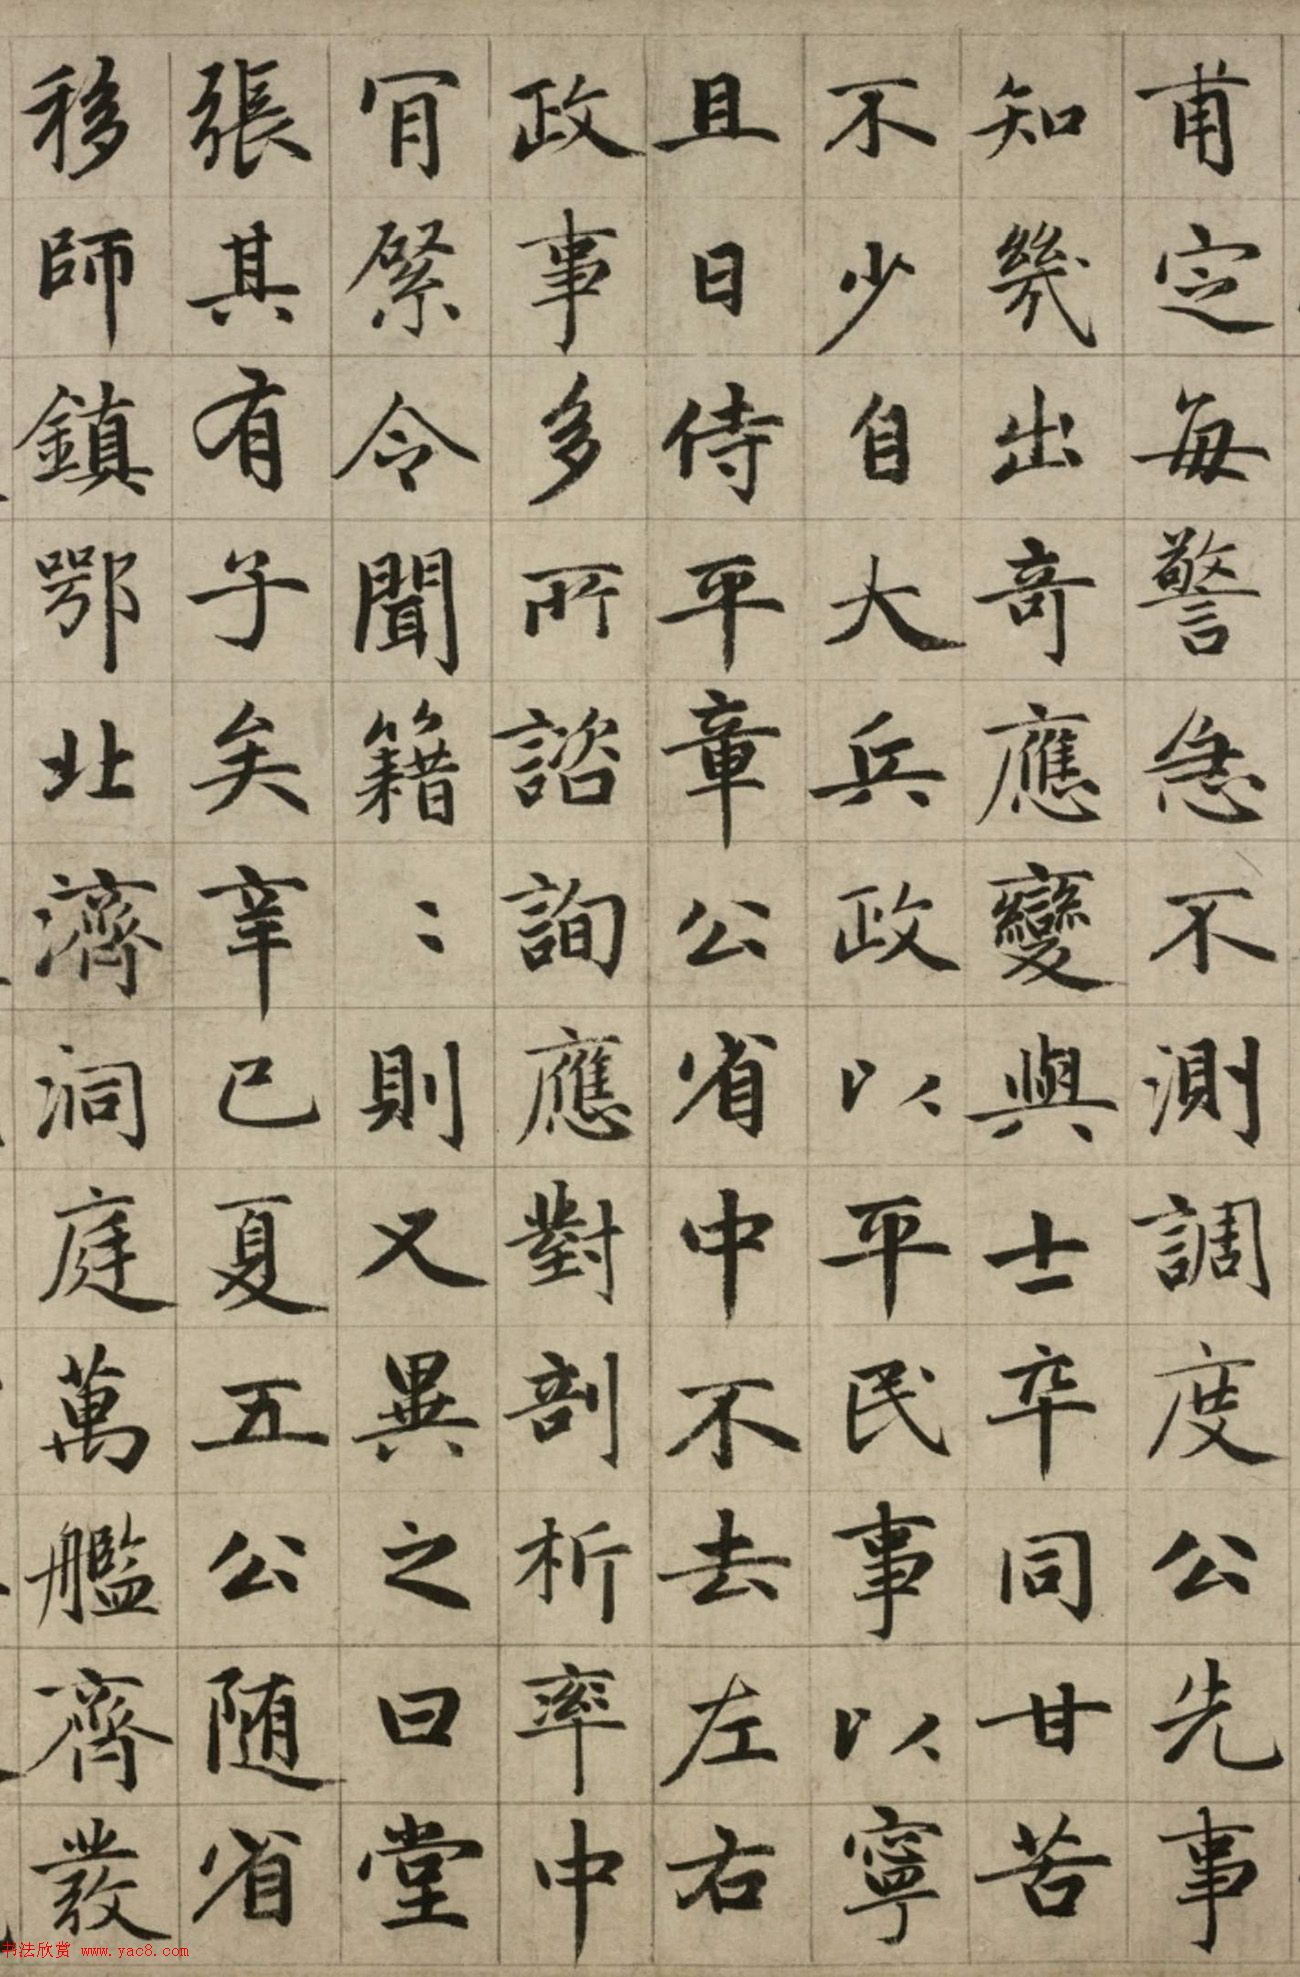 甫定每警急不測調度公先事
知幾出竒應變與士卒同甘苦
不少自大兵政以平民事以寧
且日侍平章公省中不去左右
政事多所諮詢應對剖析率中
肎綮令聞籍〻則又異之曰堂
張其有子矣辛巳夏五公随省
移師鎮鄂北濟洞庭萬艦齊發
书法欣赏 www.yac8.com